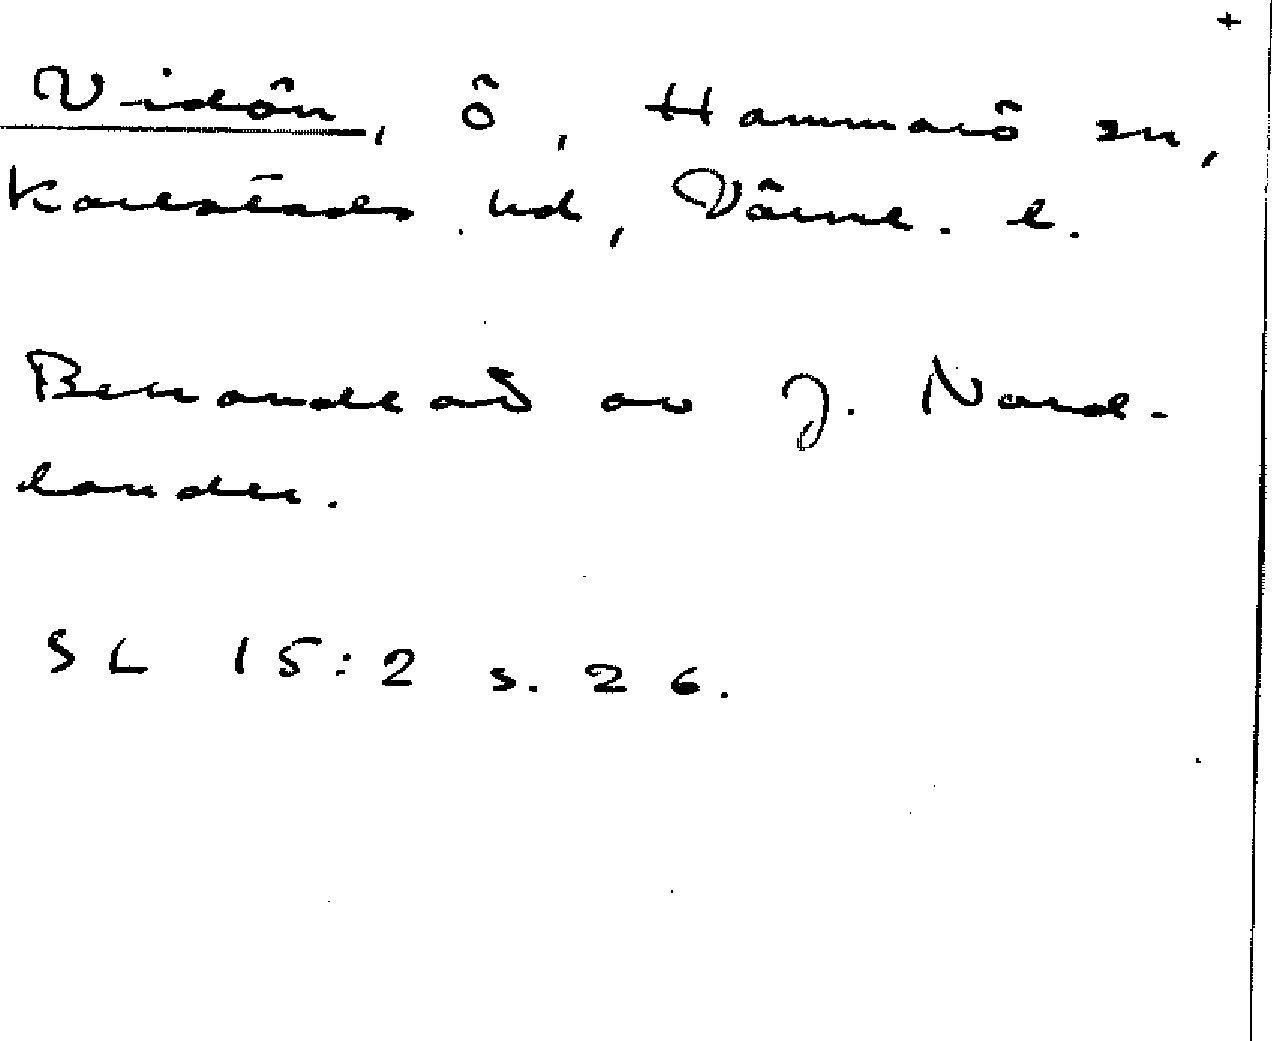 +
Vidön, ö, Hammarö sn,
Karlstads hd, Värml. l.
Behandlad av J. Nord-
lander.
SL 15:2 s. 26.